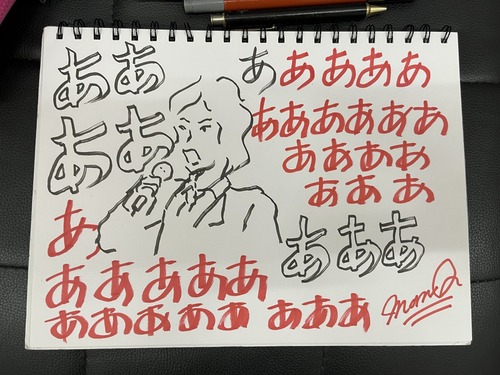 ああ
あああああ
ああ
ああああああ
ああああ
あああ
あ
あああ
あああああ
あああああ あああ